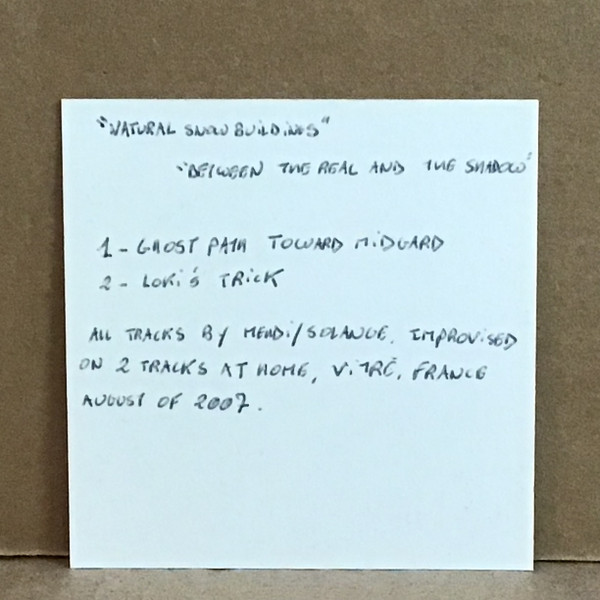 "NATURAL SNOW BUILDINGS"
"BETWEEN THE REAL AND THE SHADOW"
1 - GHOST PATH TOWARD MIDGARD
2 - LOKI'S TRICK
ALL TRACKS BY MEHDI/SOLANGE. IMPROVISED
ON 2 TRACKS AT HOME, VITRÉ, FRANCE
AUGUST OF 2007.